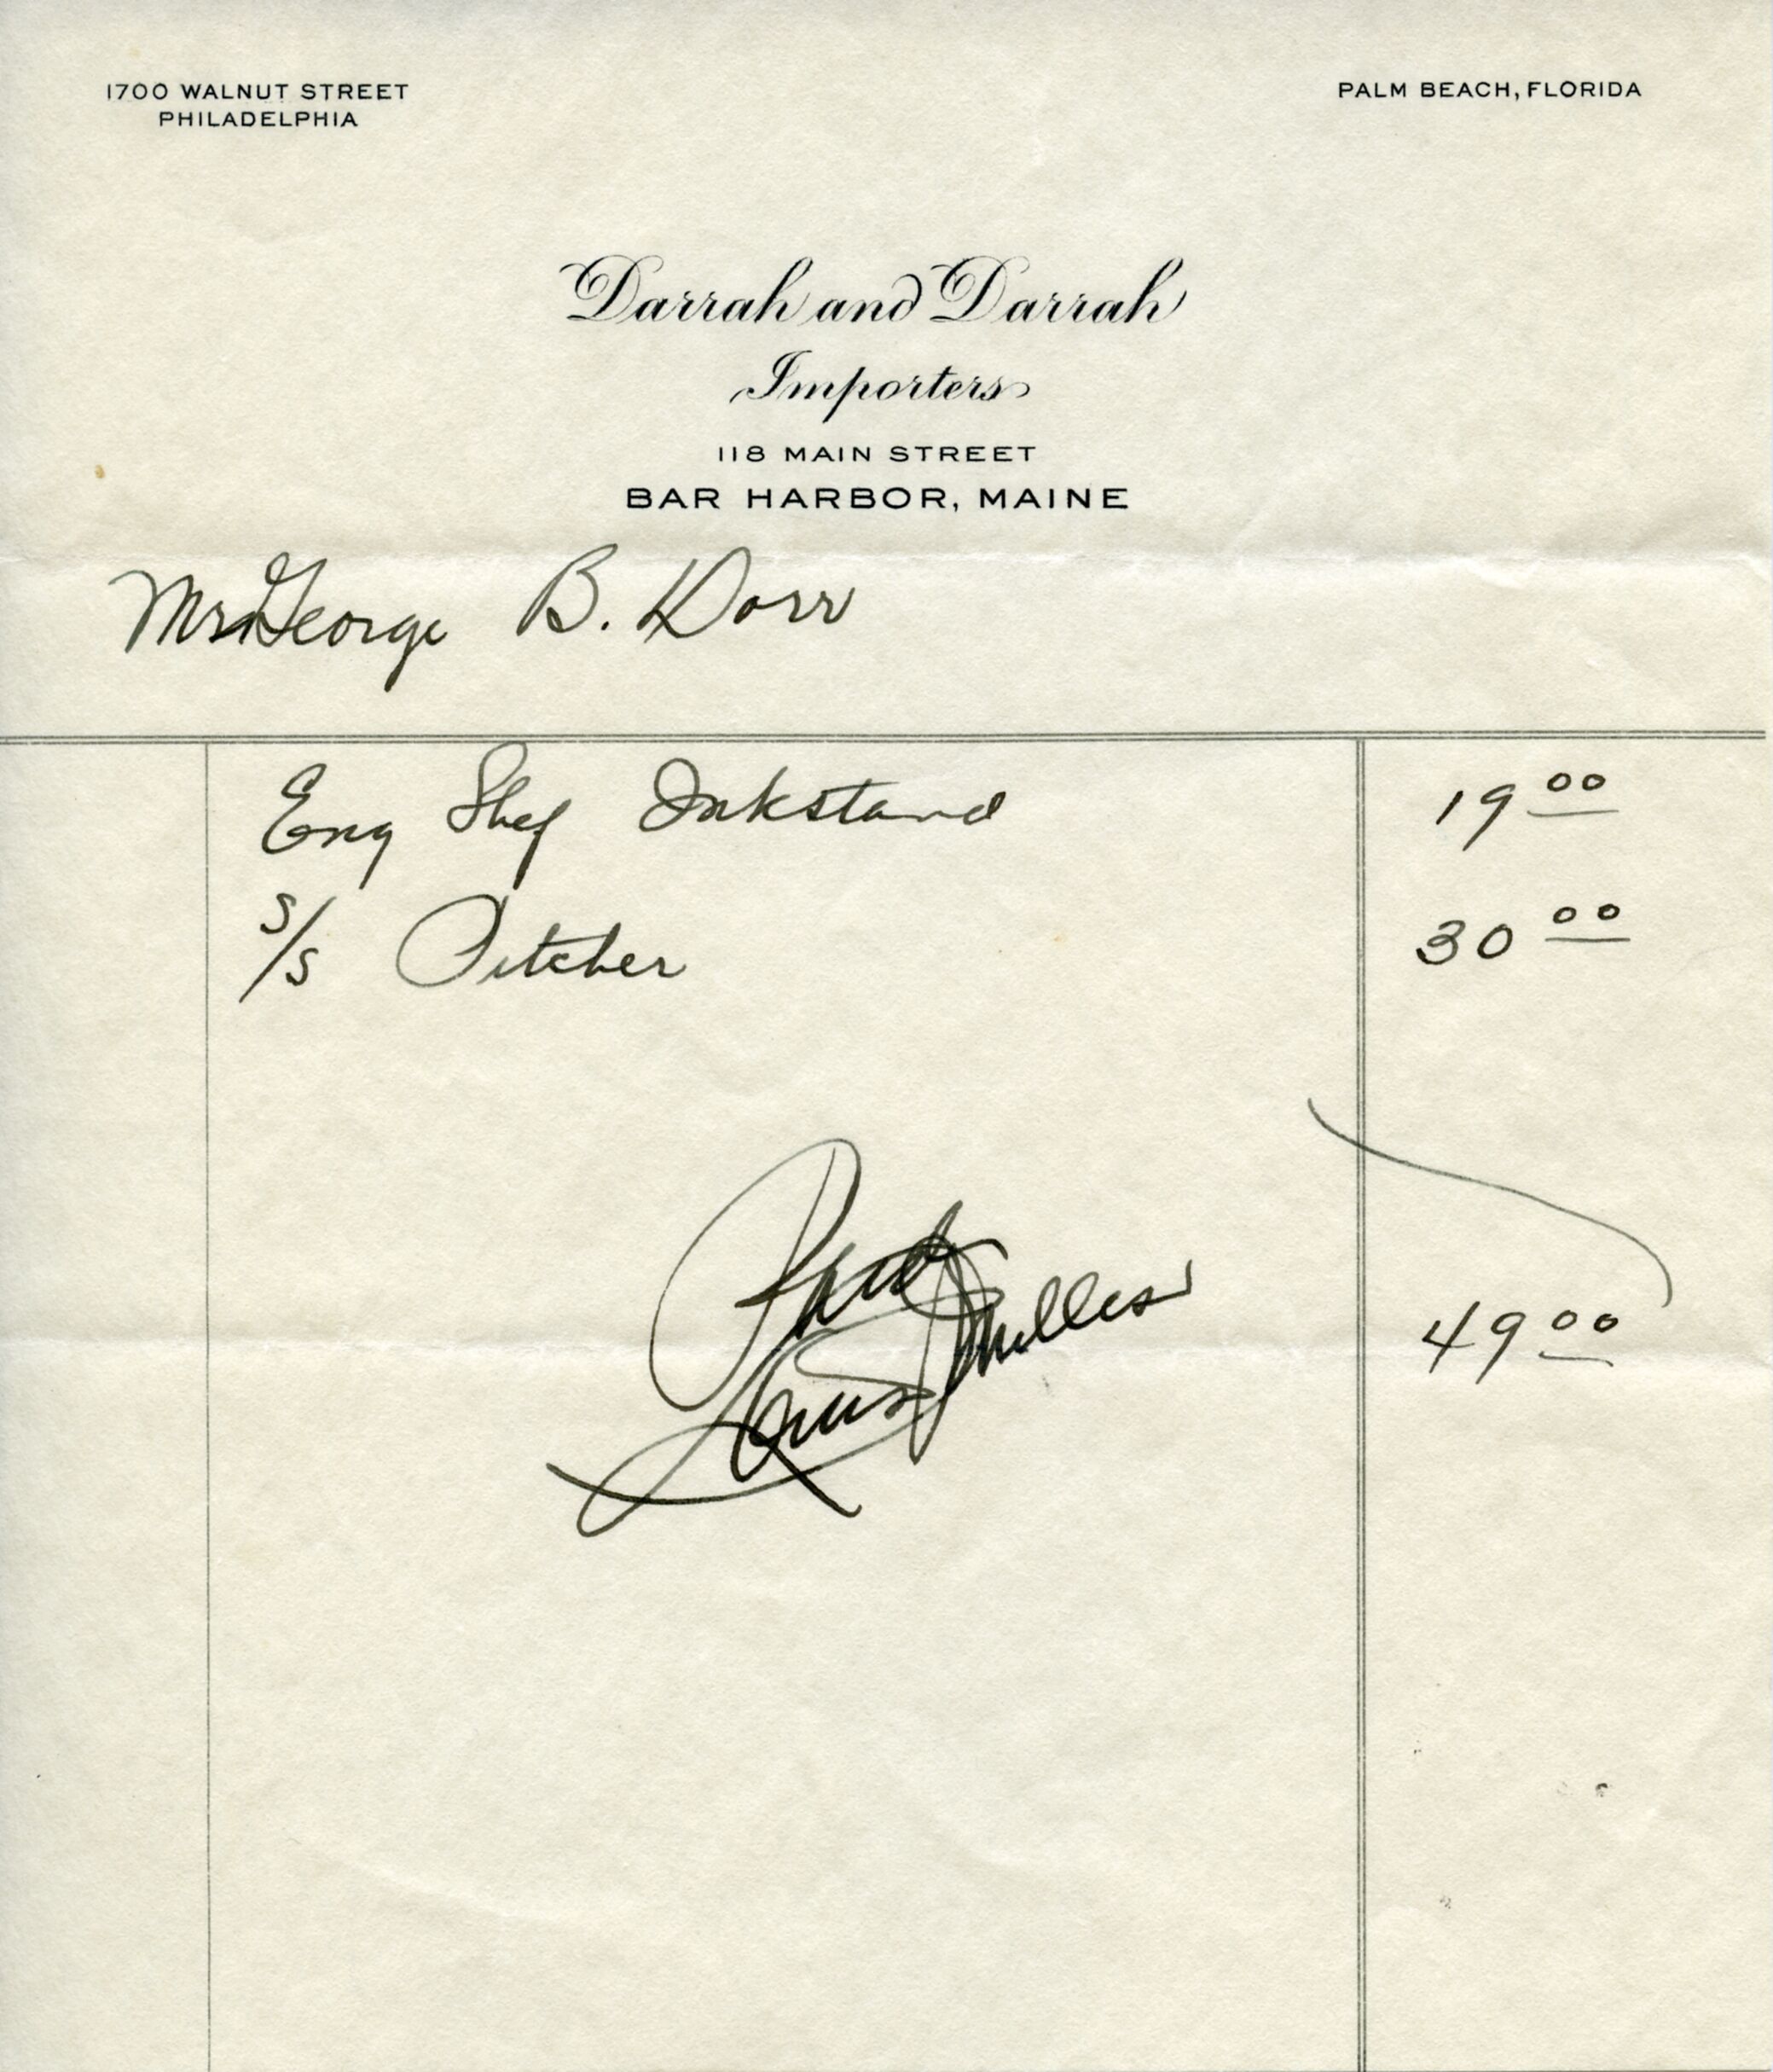 1700 WALNUT STREET
PHILADELPHIA
PALM BEACH, FLORIDA
Darrah and Darrah
Importers
118 MAIN STREET
BAR HARBOR, MAINE
Mr George B. Dorr
Eng Shef Inkstand 19 00
s/s Pitcher 30 00
Paid
49 00